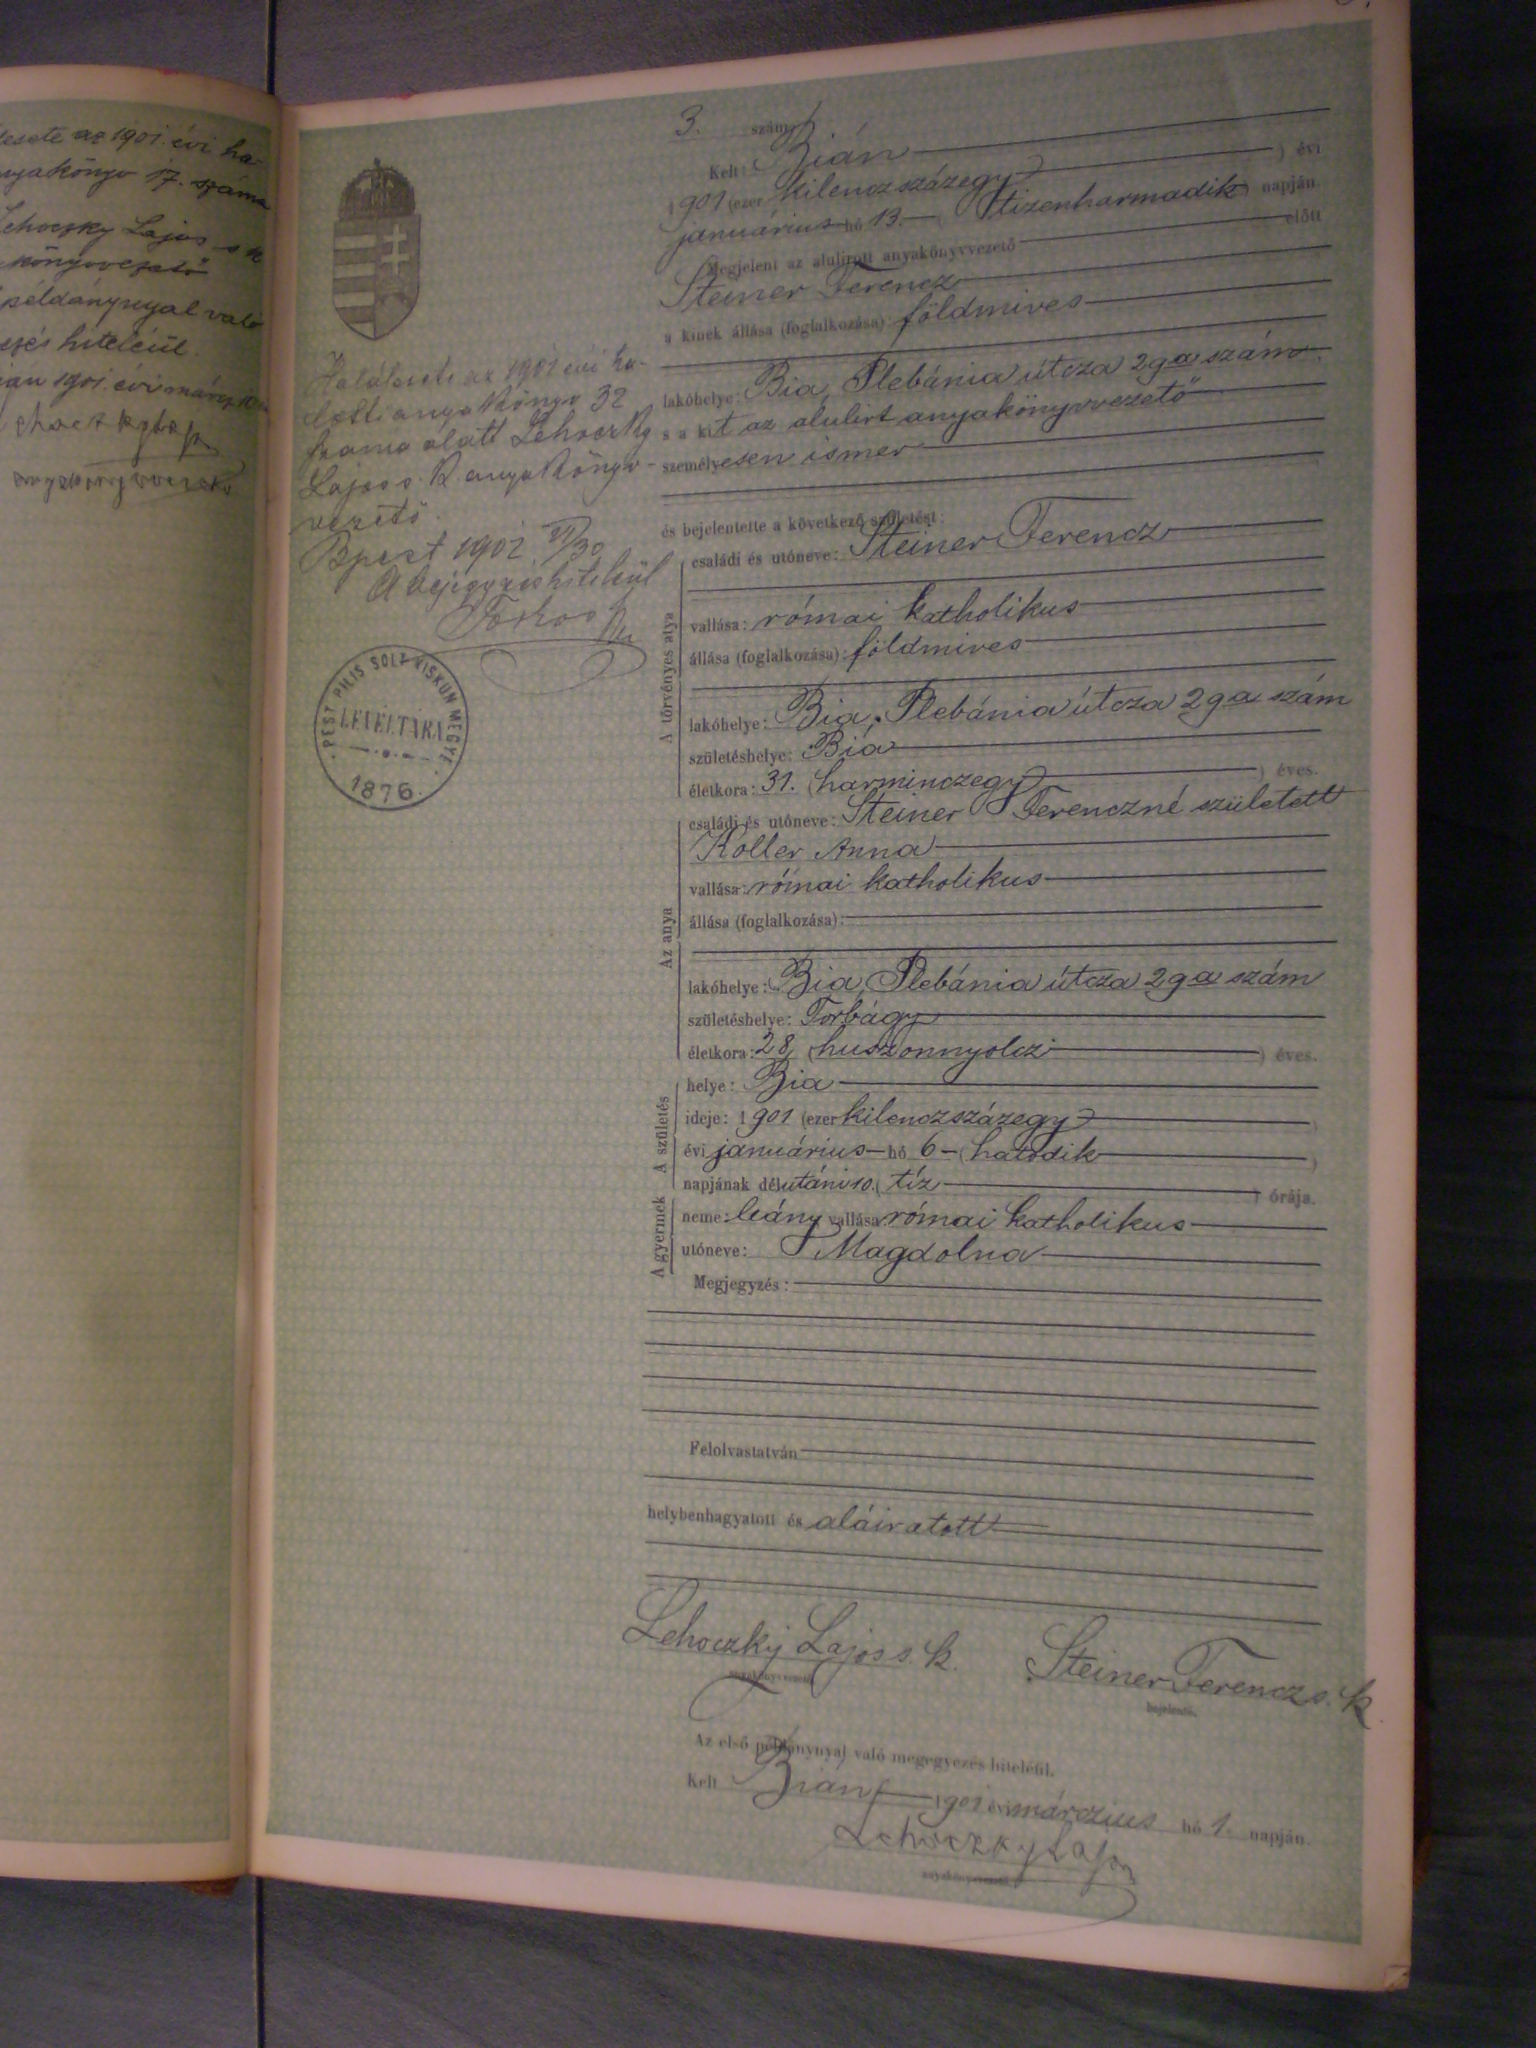 esete az 1901. évi ha-
nyakönyv 17. száma
Lehoczky Lajos s k
könyvvezető
példánynyal való
hiteléül.
1901. évi
3. szám.
Kelt: Bián ) évi
1901 (ezer kilenczszázegy
január ius hó 13. ( tizenharmadik ) napján.
Megjelent az alulirott anyakönyvvezető előtt
Steiner Ferencz
a kinek állása (foglalkozása): földmives
lakóhelye: Bia, Plebánia útcza 29a szám.
s a kit az alulirt anyakönyvvezető
személyesen ismer
és bejelentette a következő születést:
A törvényes atya
családi és utóneve: Steiner Ferencz
vallása: római katholikus
állása (foglalkozása): földmives
lakóhelye: Bia, Plebánia útcza 29a szám
születéshelye: Bia
életkora: 31. (harminczegy ) éves.
Az anya
családi és utóneve: Steiner Ferenczné született
Koller Anna
vallása: római katholikus
állása (foglalkozása):
lakóhelye: Bia, Plebánia útcza 29a szám
születéshelye: Torbágy
életkora: 28, (huszonnyolcz ) éves.
A születés
helye: Bia
ideje: 1901 (ezer kilenczszázegy )
évi január ius hó 6 (hatodik )
napjának délutáni 10. ( tíz ) órája.
A gyermek
neme: leány vallása: római katholikus
utóneve: Magdolna
Megjegyzés:
Felolvastatván
helybenhagyatott és aláiratott
Lehoczky Lajos s. k.
anyakönyvvezető.
Steiner Ferencz s. k
bejelentő.
Az első példánynyal való megegyezés hiteléül.
Kelt Bián 1901 évi márczius hó 1. napján.
Lehoczky Lajos
anyakönyvvezető.
Halálesete az 1901 évi ha-
lotti anyakönyv 32
száma alatt Lehoczky
Lajos s. k. anyakönyv-
vezető.
Bpest 1902 VI/30
A bejegyzés hiteléül
PEST PILIS SOLT KISKUN MEGYE
LEVÉLTÁRA
1876.